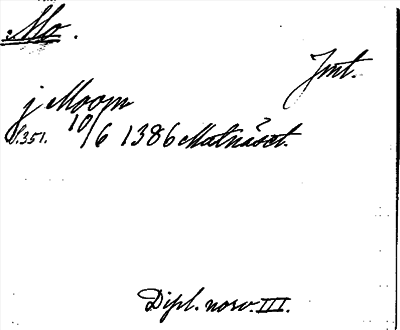 Mo.
Jmt.
j Moom
s.351. 10/6 1386 Matnäset.
Dipl. norv. III.